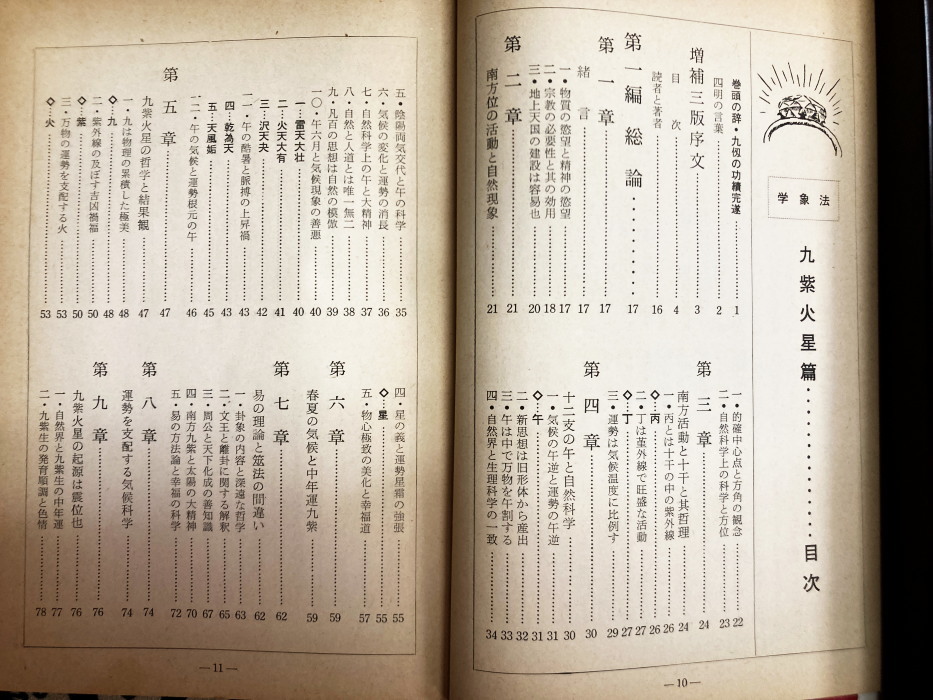 法象学
九紫火星篇・・・・・・・・・・目次
巻頭の辞・九仭の功績完遂……1
四明の言葉……2
増補三版序文……3
目次……4
読者と著者……16
第一編 総論……17
第一章……17
緒言……17
一・物質の慾望と精神の慾望……17
二・宗教の必要性と其の効用……18
三・地上天国の建設は容易也……20
第二章……21
南方位の活動と自然現象……21
一・的確中心点と方角の観念……22
二・自然科学上の科学と方位……23
第三章……24
南方活動と十干と其哲理……24
一・丙とは十干の中の紫外線……26
◇…丙……26
二・丁は菫外線で旺盛な活動……27
◇…丁……27
三・運勢は気候温度に比例す……29
第四章……30
十二支の午と自然科学……30
一・気候の午逆と運勢の午逆……31
◇…午……31
二・新思想は旧形体から産出……32
三・午は中で万物を午割する……33
四・自然界と生理科学の一致……34
五・陰陽両気交代と午の科学……35
六・気候の変化と運勢の消長……36
七・自然科学上の午と大精神……37
八・自然と人道とは唯一無二……38
九・凡百の思想は自然の模倣……39
一〇・午六月と気候現象の善悪……40
一・雷天大壮……40
二・火天大有……41
三・沢天夬……42
四・乾為天……43
一一・午の酷暑と脈搏の上昇禍……43
五・天風姤……45
一二・午の気候と運勢根元の午……46
第五章……47
九紫火星の哲学と結果観……47
一・九は物理の累積した極美……48
◇…九……48
二・紫外線の及ぼす吉凶禍福……50
◇…紫……50
三・万物の運勢を支配する火……53
◇…火……53
四・星の義と運勢星霜の強張……55
◇…星……55
五・物心極致の美化と幸福道……57
第六章……59
春夏の気候と中年運九紫……59
第七章……62
易の理論と筮法の間違い……62
一・卦象の内容と深遠な哲学……63
二・文王と離卦に関する解釈……65
三・周公と天下化成の善知識……67
四・南方九紫と太陽の大精神……70
五・易の方法論と幸福の科学……72
第八章……74
運勢を支配する気候科学……74
第九章……76
九紫火星の起源は震位也……76
一・自然界と九紫生の中年運……77
二・九紫生の発育順調と色情……78
—10—
—11—